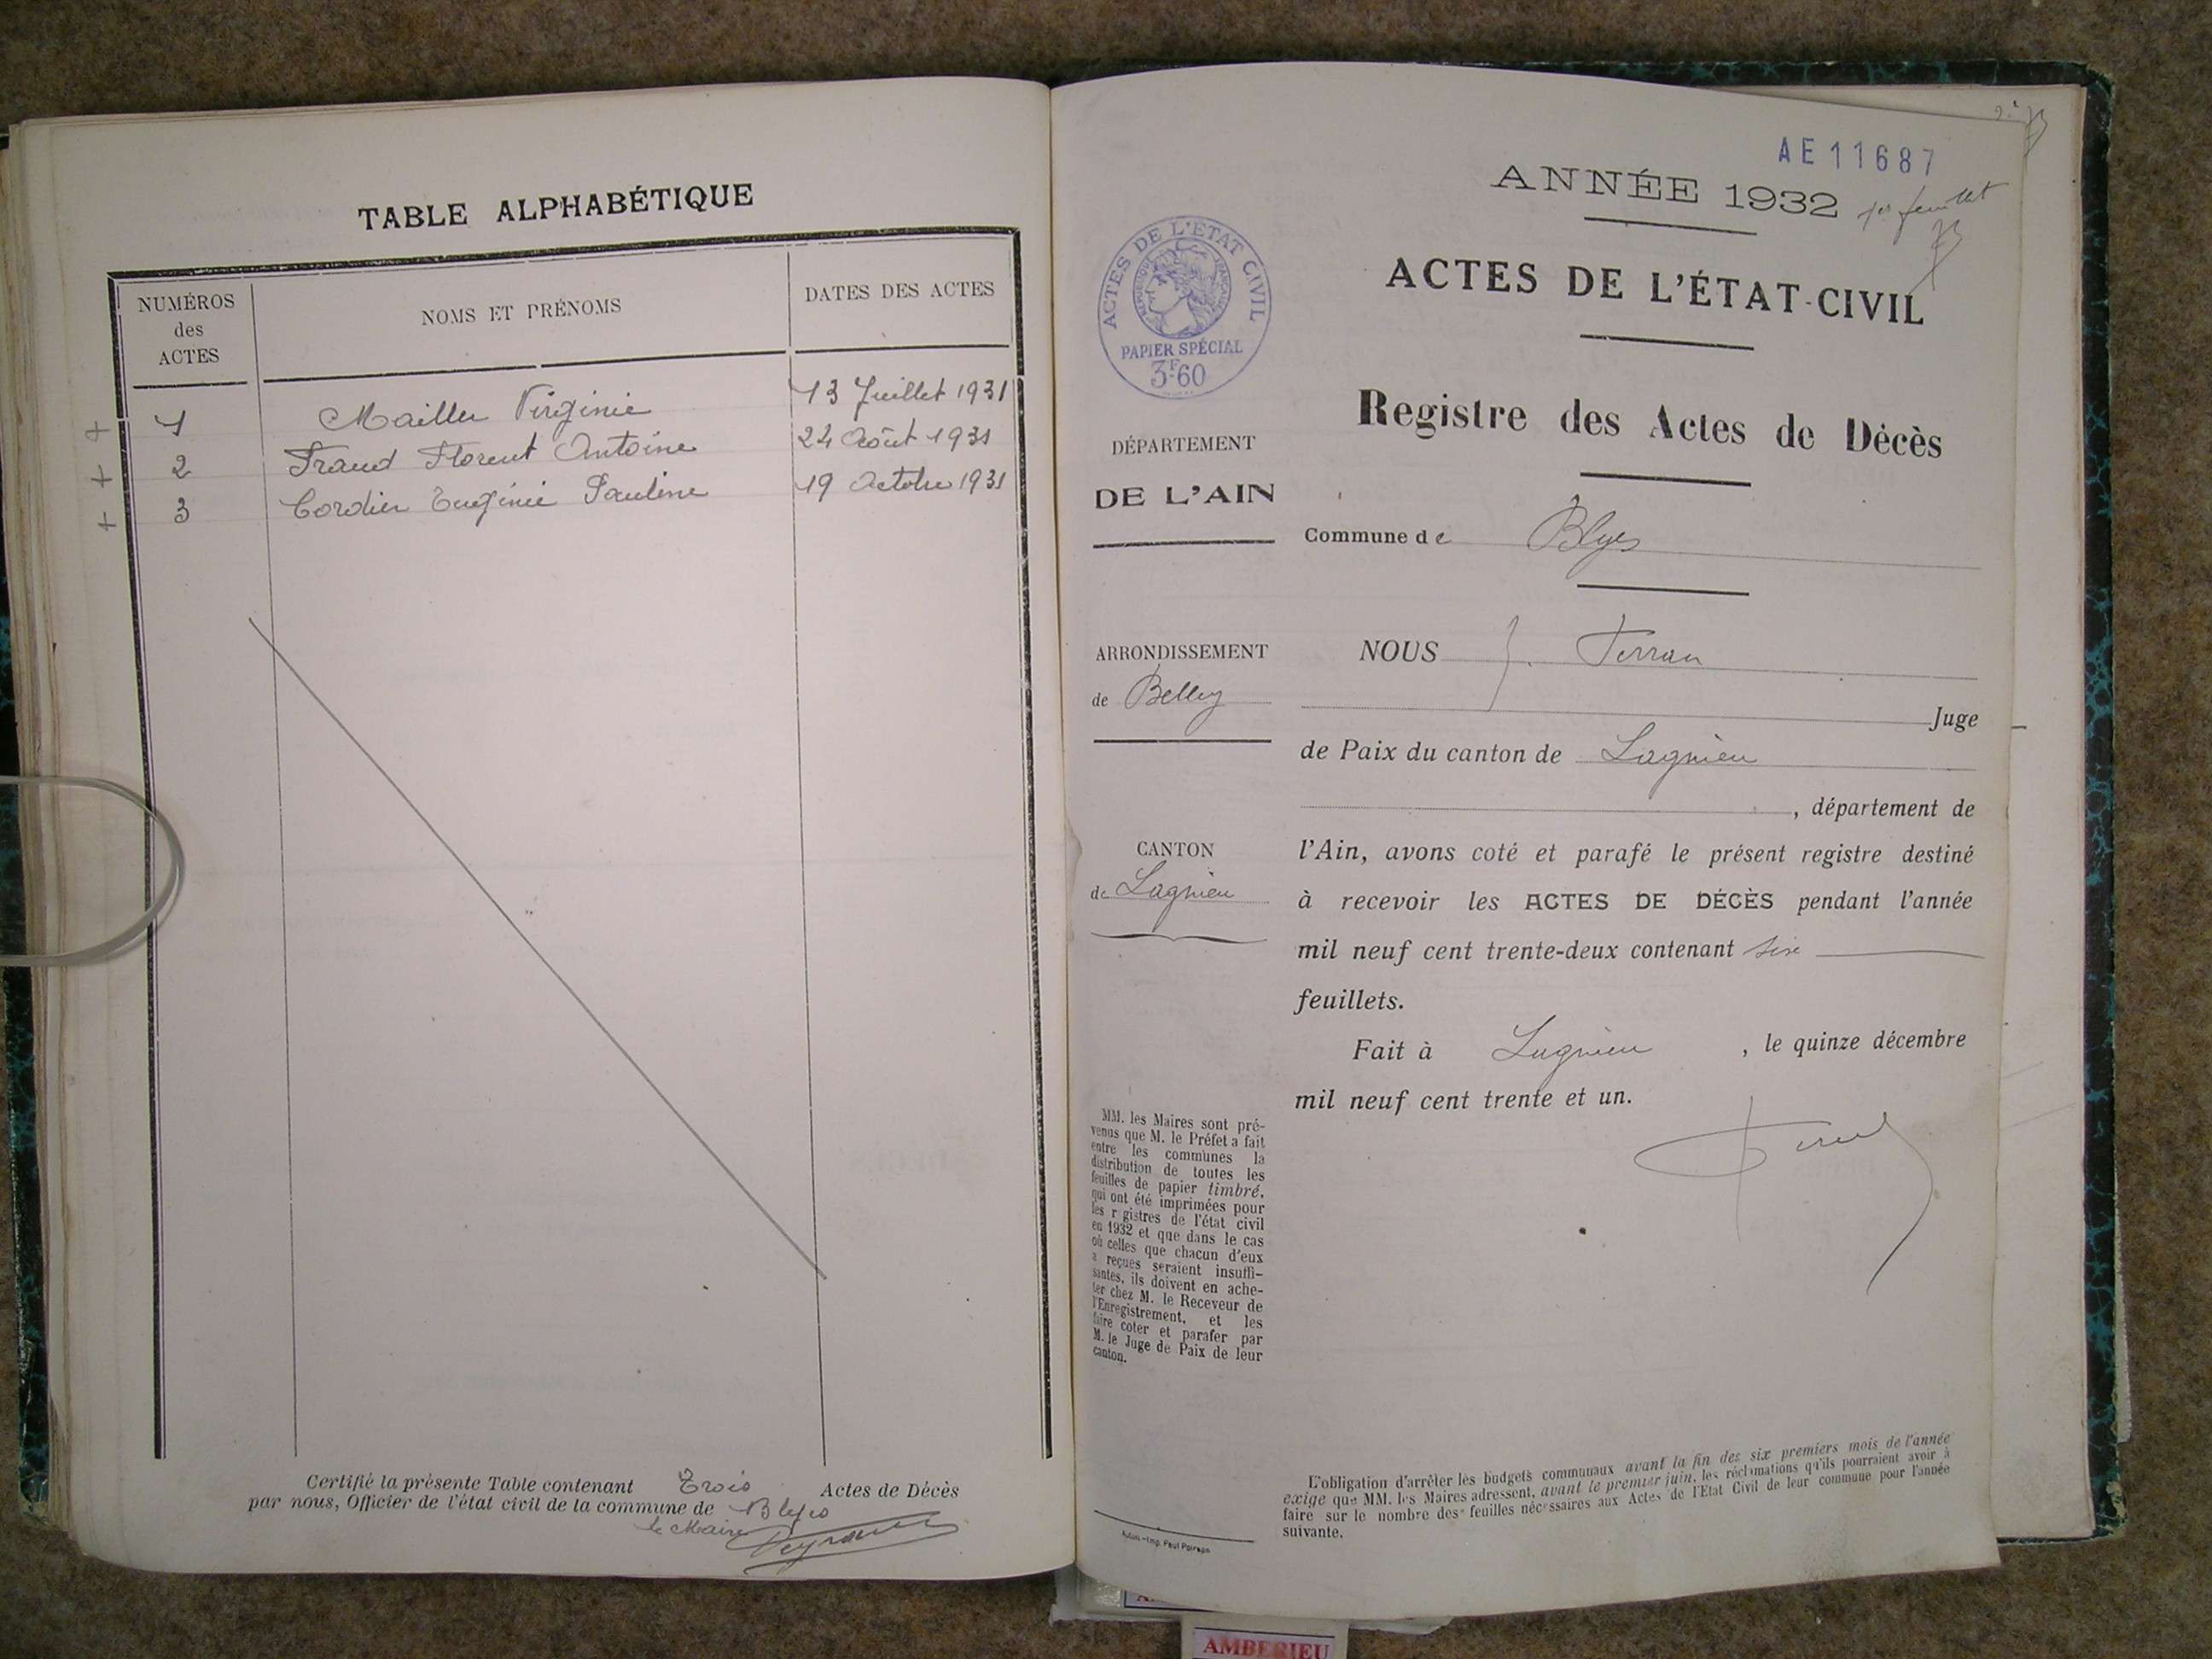 TABLE ALPHABÉTIQUE
NUMÉROS
des
ACTES
NOMS ET PRÉNOMS
DATES DES ACTES
+ 1 Virginie 13 Juillet 1931
+ 2 Florent Antoine 24 Août 1931
+ 3 Cordier Eugénie Pauline 19 Octobre 1931
Certifié la présente Table contenant Trois Actes de Décès
par nous, Officier de l'état civil de la commune de Blyes
le Maire
AE11687
ANNÉE 1932 1er feuillet
ACTES DE L'ÉTAT CIVIL
RÉPUBLIQUE FRANÇAISE
PAPIER SPÉCIAL
3F60
ACTES DE L'ÉTAT-CIVIL
Registre des Actes de Décès
DÉPARTEMENT
DE L'AIN
Commune de Blyes
ARRONDISSEMENT
de Belley
CANTON
de Lagnieu
NOUS J.
Juge
de Paix du canton de Lagnieu
, département de
l'Ain, avons coté et parafé le présent registre destiné
à recevoir les ACTES DE DÉCÈS pendant l'année
mil neuf cent trente-deux contenant six
feuillets.
Fait à Lagnieu , le quinze décembre
mil neuf cent trente et un.
MM. les Maires sont pré-
venus que M. le Préfet a fait
entre les communes la
distribution de toutes les
feuilles de papier timbré,
qui ont été imprimées pour
les r gistres de l'état civil
en 1932 et que dans le cas
où celles que chacun d'eux
a reçues seraient insuffi-
santes, ils doivent en ache-
ter chez M. le Receveur de
l'Enregistrement, et les
faire coter et parafer par
M. le Juge de Paix de leur
canton.
L'obligation d'arrêter les budgets communaux avant la fin des six premiers mois de l'année
exige que MM. les Maires adressent, avant le premier juin, les réclamations qu'ils pourraient avoir à
faire sur le nombre des feuilles nécessaires aux Actes de l'Etat Civil de leur commune pour l'année
suivante.
Imp. Paul
AMBERIEU